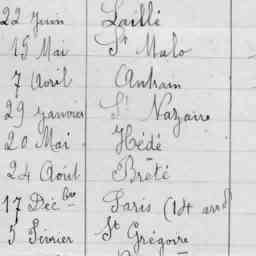 22 Juin Laillé
15 Mai St Malo
7 Avril Antrain
29 Janvier St Nazaire
20 Mai Hédé
24 Août
17 Déc bre Paris (14 arrdt)
5 Février St Grégoire